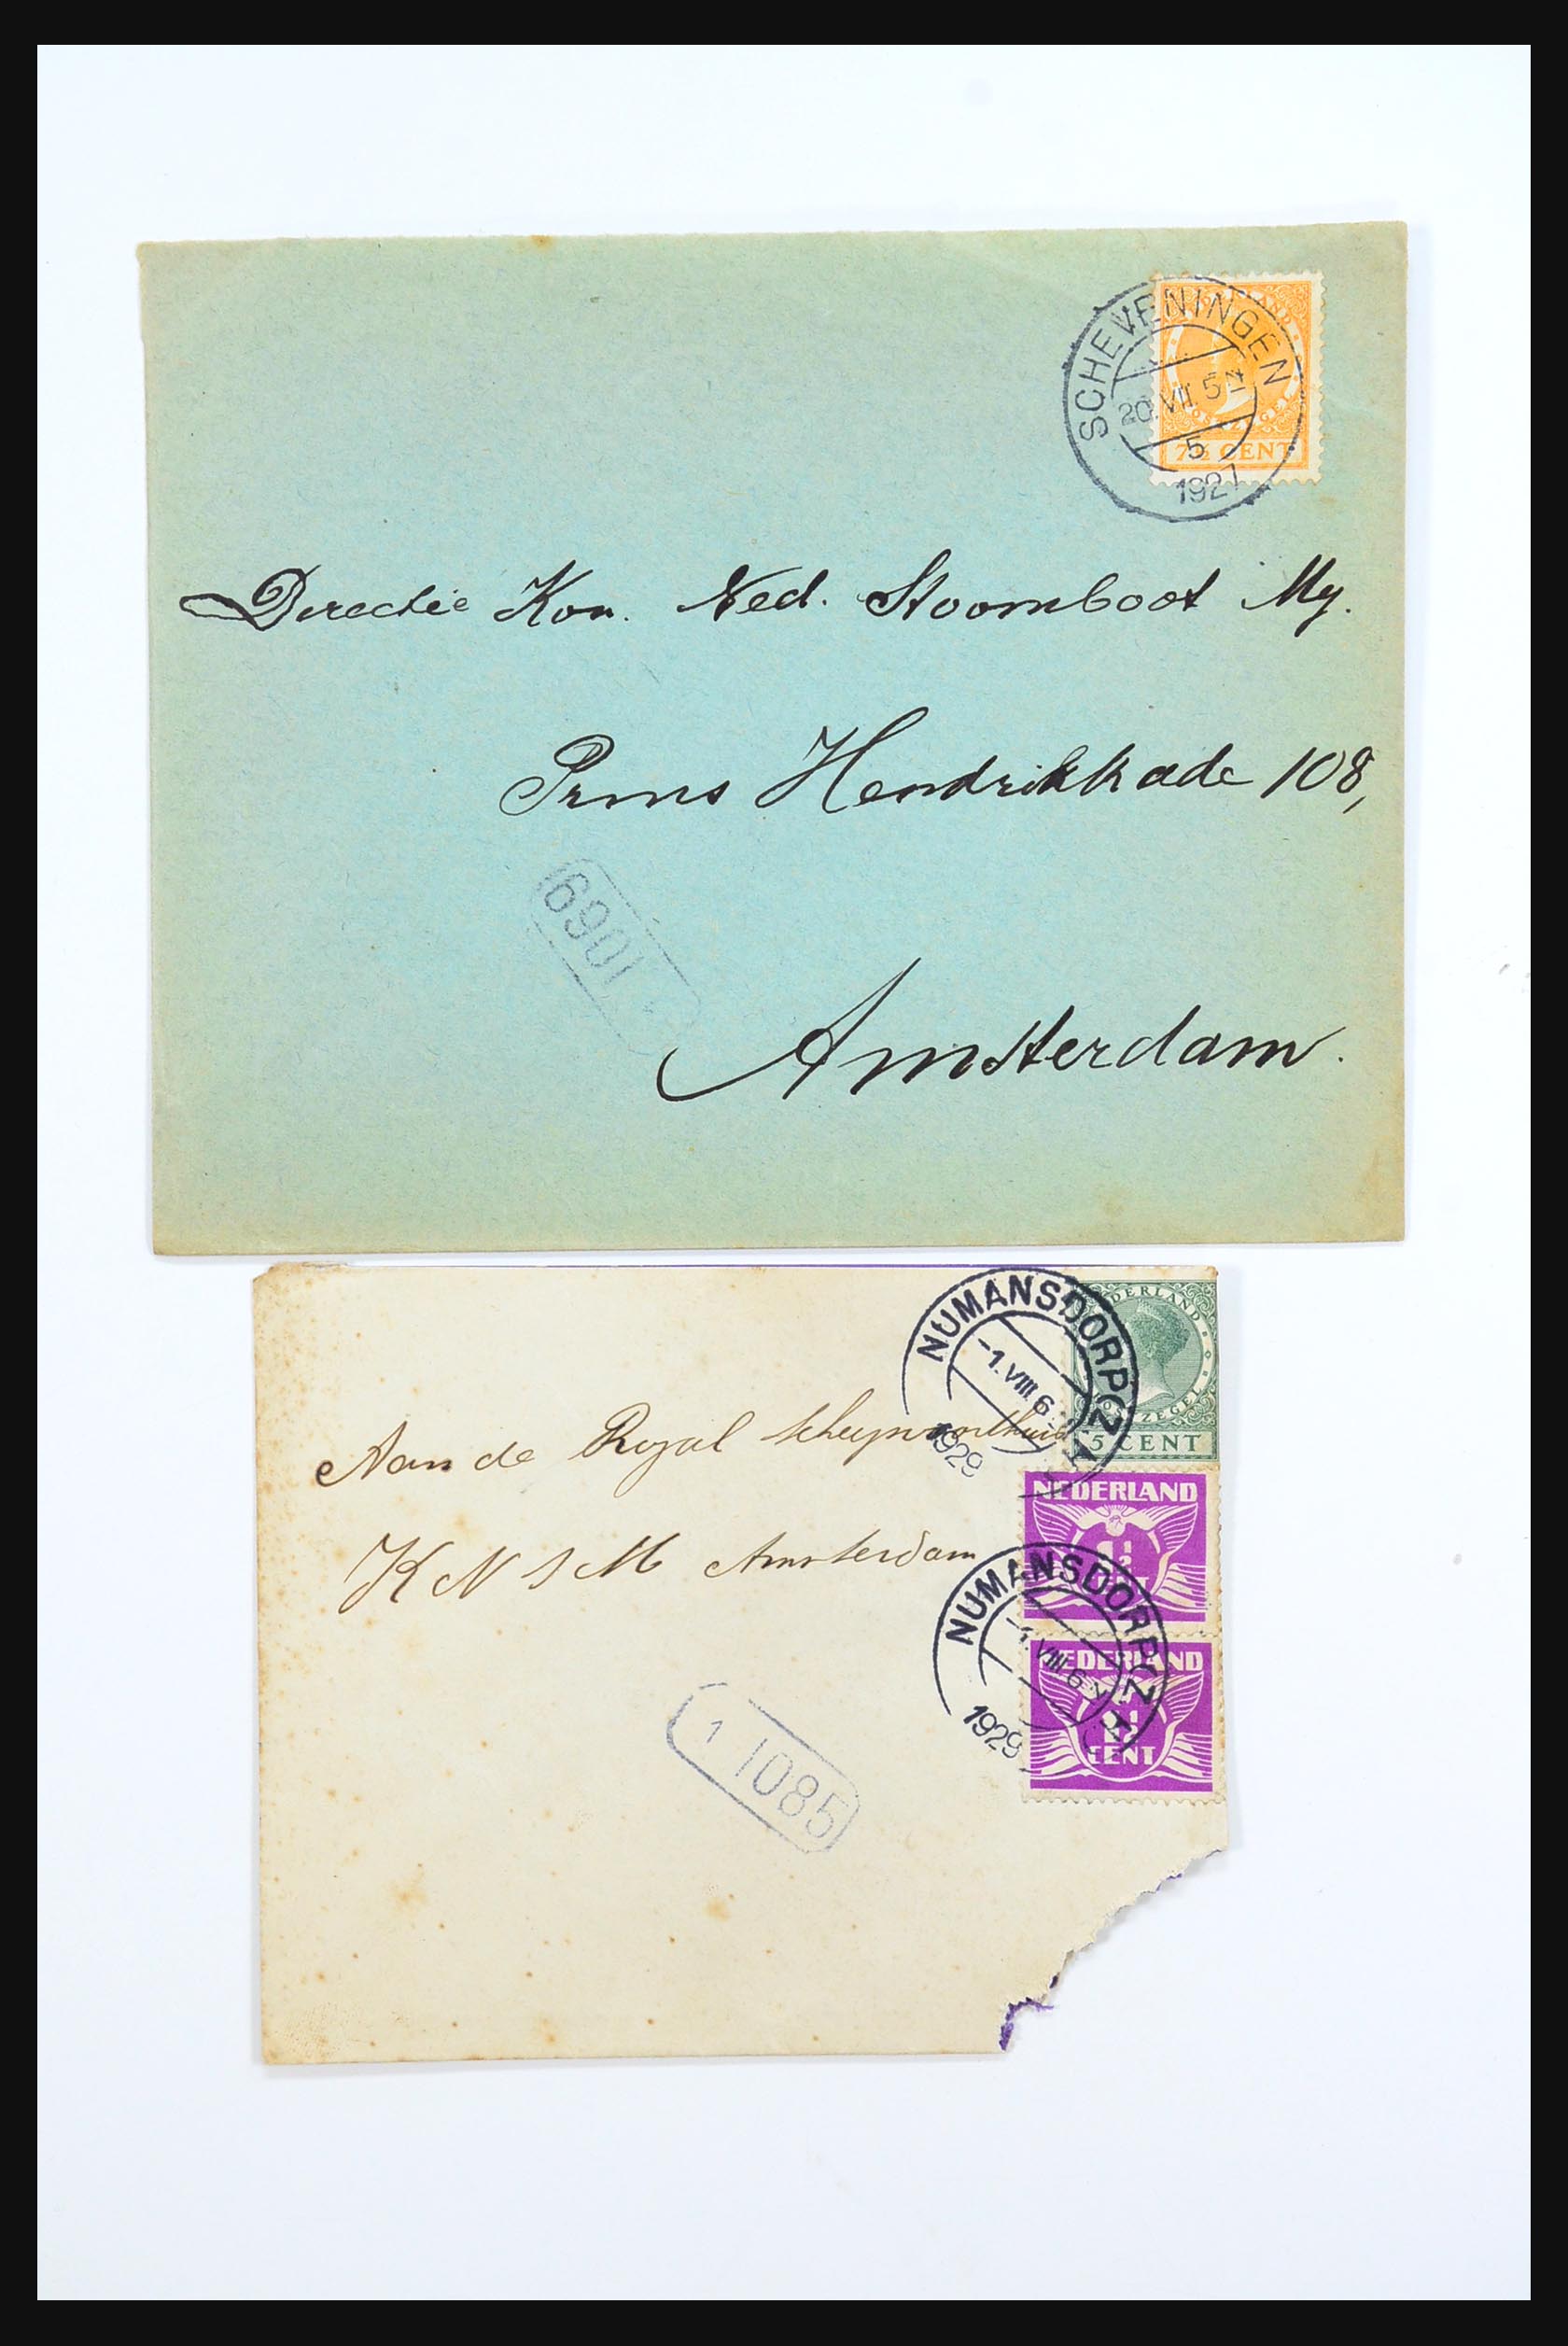 SCHEVENINGEN
20.VII.5N
5
1927
7½ CENT
Directie Kon. Ned. Stoomboot My.
Prins Hendrikkade 108,
1069
Amsterdam.
NUMANSDORP (Z H
-1.VIII.6
1929
NEDERLAND
POSTZEGEL
5 CENT
Aan de Royal scheepvaarthuis
NEDERLAND
1½
K N S M Amsterdam
NUMANSDORP (Z H
-1.VIII.6
1929
NEDERLAND
CENT
1 1085